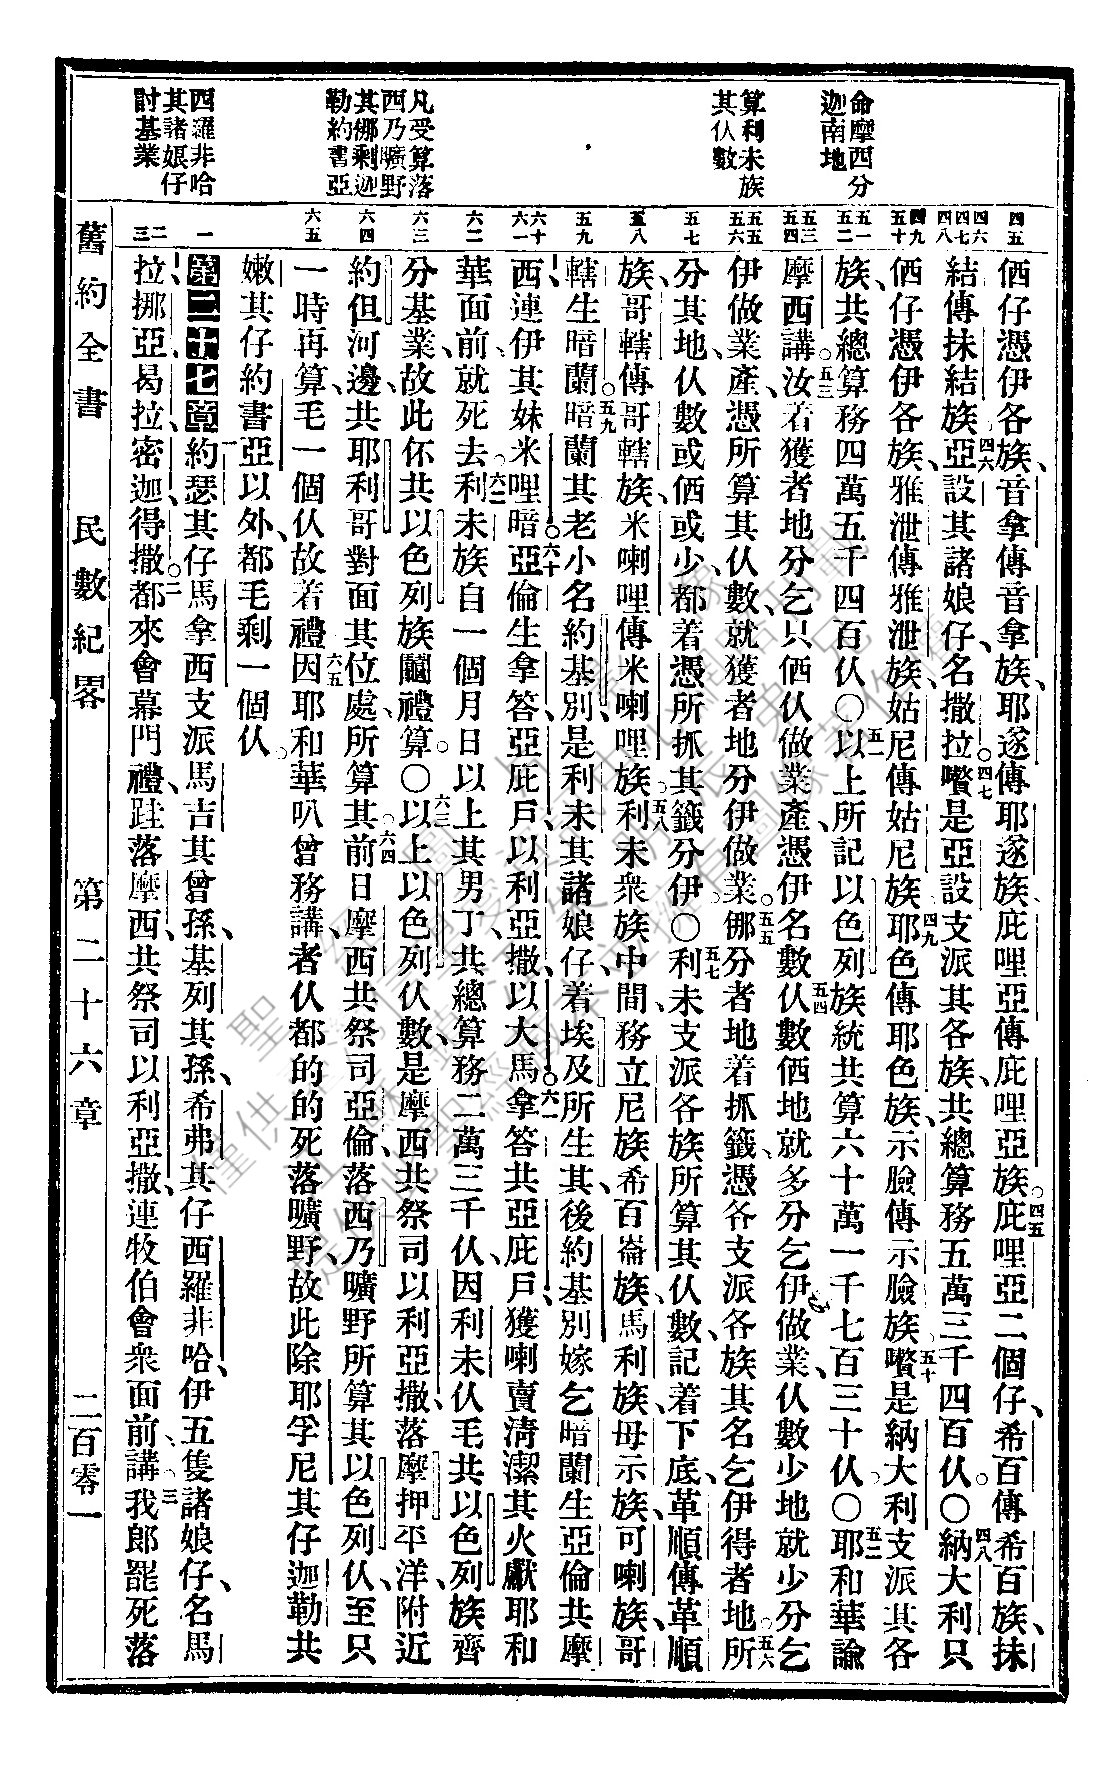 命摩西分
迦南地
算利未族
其仈數
凡受算落
西乃曠野
其㑚剩迦
勒約書亞
西羅非哈
其諸娘仔
討基業
四五
四六
四七
四八
四九
五十
五一
五二
五三
五四
五五
五六
五七
五八
五九
六十
六一
六二
六三
六四
六五
一
二
三
𠆧仔憑伊各族、音拿傳音拿族、耶遂傳耶遂族、庇哩亞傳庇哩亞族。四五庇哩亞二個仔、希百傳希百族、抹
結傳抹結族。四六亞設其諸娘仔、名撒拉。四七嚽是亞設支派其各族、共總算務五萬三千四百仈。〇四八納大利只
𠆧仔憑伊各族、雅泄傳雅泄族、姑尼傳姑尼族、四九耶色傳耶色族、示臉傳示臉族。五十嚽是納大利支派其各
族、共總算務四萬五千四百仈。〇五一以上所記以色列族統共算六十萬一千七百三十仈。〇五二耶和華諭
摩西講、五三汝着獲者地分乞只𠆧仈做業產、憑伊名數。五四仈數𠆧地就多分乞伊做業、仈數少地就少分乞
伊做業產、憑所算其仈數、就獲者地分伊做業。五五㑚分者地着抓籤、憑各支派各族其名乞伊得者地。五六所
分其地、仈數或𠆧或少、都着憑所抓其籤分伊。〇五七利未支派各族所算其仈數、記着下底、革順傳革順
族、哥轄傳哥轄族、米喇哩傳米喇哩族。五八利未衆族中間、務立尼族、希百崙族、馬利族、母示族、可喇族、哥
轄生暗蘭。五九暗蘭其老小名約基別、是利未其諸娘仔、着埃及所生其、後約基別嫁乞暗蘭、生亞倫共摩
西、連伊其妹米哩暗。六十亞倫生拿答、亞庇戶、以利亞撒、以大馬。六一拿答共亞庇戶、獲喇賣淸潔其火獻耶和
華面前、就死去。六二利未族自一個月日以上其男丁、共總算務二萬三千仈、因利未仈毛共以色列族齊
分基業、故此伓共以色列族𡅏禮算。〇六三以上以色列仈數、是摩西共祭司以利亞撒、落摩押平洋、附近
約但河邊、共耶利哥對面其位處所算其。六四前日摩西共祭司亞倫、落西乃曠野所算其以色列仈、至只
一時再算、毛一個仈故着禮。六五因耶和華叭曾務講、者仈都的的死落曠野、故此除耶孚尼其仔迦勒、共
嫩其仔約書亞以外、都毛剩一個仈。
第二十七章 一約瑟其仔馬拿西支派、馬吉其曾孫、基列其孫、希弗其仔西羅非哈、伊五隻諸娘仔、名馬
拉、挪亞、曷拉、密迦、得撒、二都來會幕門禮、跬落摩西共祭司以利亞撒、連牧伯會衆面前講、三我郎罷死落
舊約全書　民數紀畧　第二十六章　二百零一
聖經